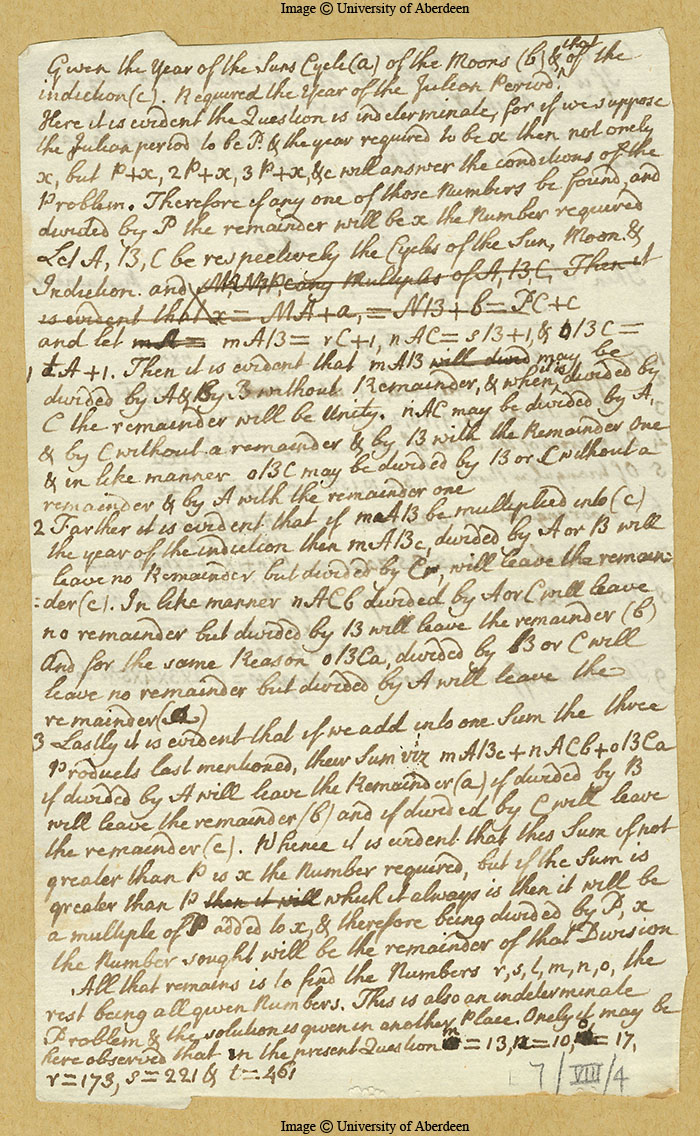 Image © University of Aberdeen
Given the Year of the Suns Cycle (a) of the Moons (b) & that of the
indiction (c). Required the Year of the Julian Period.
Here it is evident the Question is indeterminate, for if we suppose
the Julian period to be P. & the year required to be x then not onely
x, but P+x, 2P+x, 3P+x, &c will answer the conditions of the
Problem. Therefore if any one of those Numbers be found, and
divided by P the remainder will be x the Number required
Let A, B, C be respectively the Cycles of the Sun, Moon &
Indiction. and M, N, P, any Multiples of A, B, C, Then it
is evident that x = MA + a, = NB + b = PC + c
and let mA = mAB = rC+1, nAC = sB+1, & oBC =
1 tA+1. Then it is evident that mAB will divid may be
divided by A & By B without Remainder, & when it is divided by
C the remainder will be Unity. nAC may be divided by A,
& by C without a remainder & by B with the Remainder one
& in like manner oBC may be divided by B or C without a
remainder & by A with the remainder one
2 Farther it is evident that if mAB be multiplied into (c)
the year of the indiction then mABc, divided by A or B will
leave no Remainder but divided by C, will leave the remain=
=der (c). In like manner nACb divided by A or C will leave
no remainder but divided by B will leave the remainder (b)
And for the same Reason oBCa, divided by B or C will
leave no remainder but divided by A will leave the
remainder (a)
3 Lastly it is evident that if we add into one Sum the three
Products last mentioned, their Sum viz mABc + nACb + oBCa
if divided by A will leave the Remainder (a) if divided by B
will leave the remainder (b) and if divided by C will leave
the remainder (c). Whence it is evident that this Sum if not
greater than P is x the Number required, but if the Sum is
greater than P then it will which it always is then it will be
a multiple of P added to x, & therefore being divided by P, x
the Number sought will be the remainder of that Division
All that remains is to find the Numbers r, s, t, m, n, o, the
rest being all given Numbers. This is also an indeterminate
Problem & the solution is given in another Place. Onely it may be
here observed that in the present Question m = 13, n = 10, o = 17,
r = 173, s = 221 & t = 461
7/VIII/4
Image © University of Aberdeen